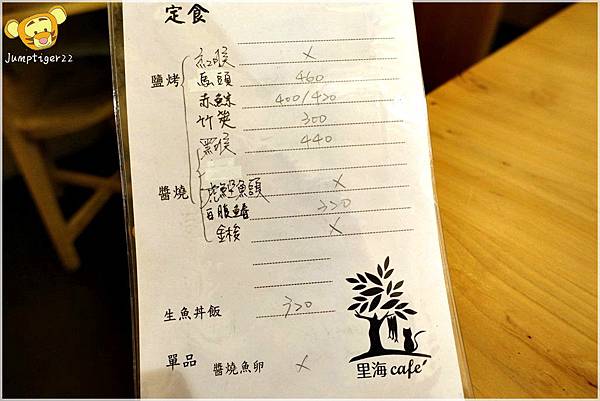 Jumptiger22
定食
鹽烤
紅喉 x
馬頭 460
赤鯮 400/420
竹筴 300
黑喉 440
醬燒
魚頭 x
320
金梭 x
生魚丼飯 320
單品 醬燒魚卵 x
里海 café